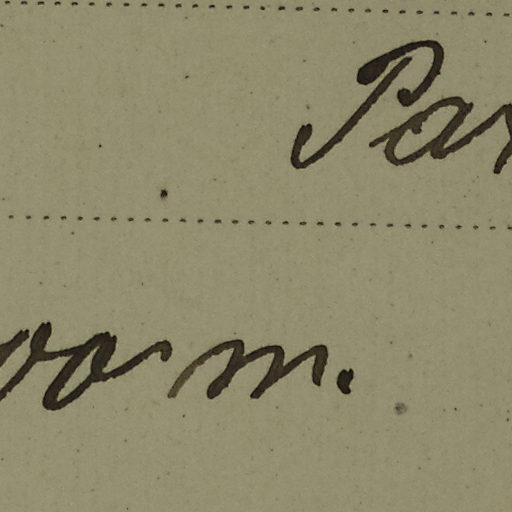 Par
vorm.